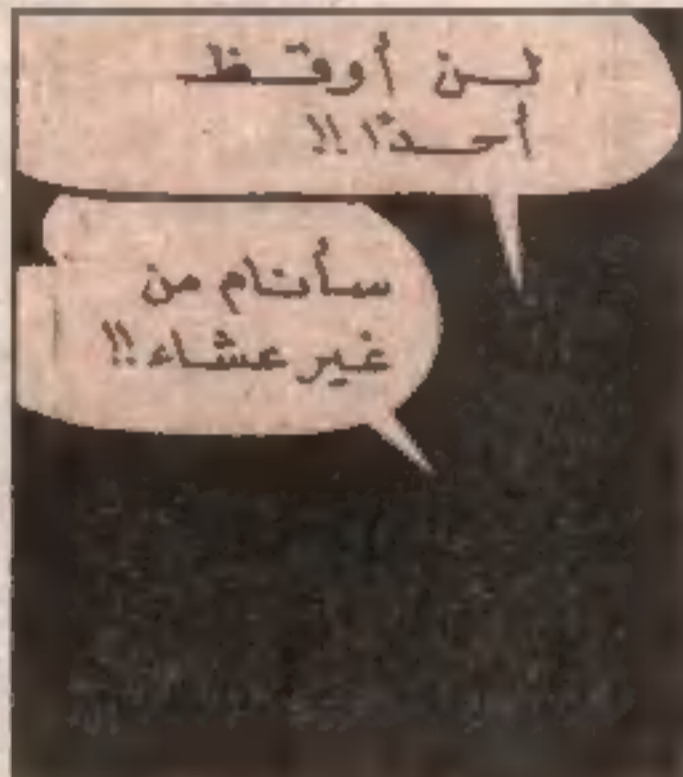 لن أوقظ
أحدًا!!
سأنام من
غير عشاء!!